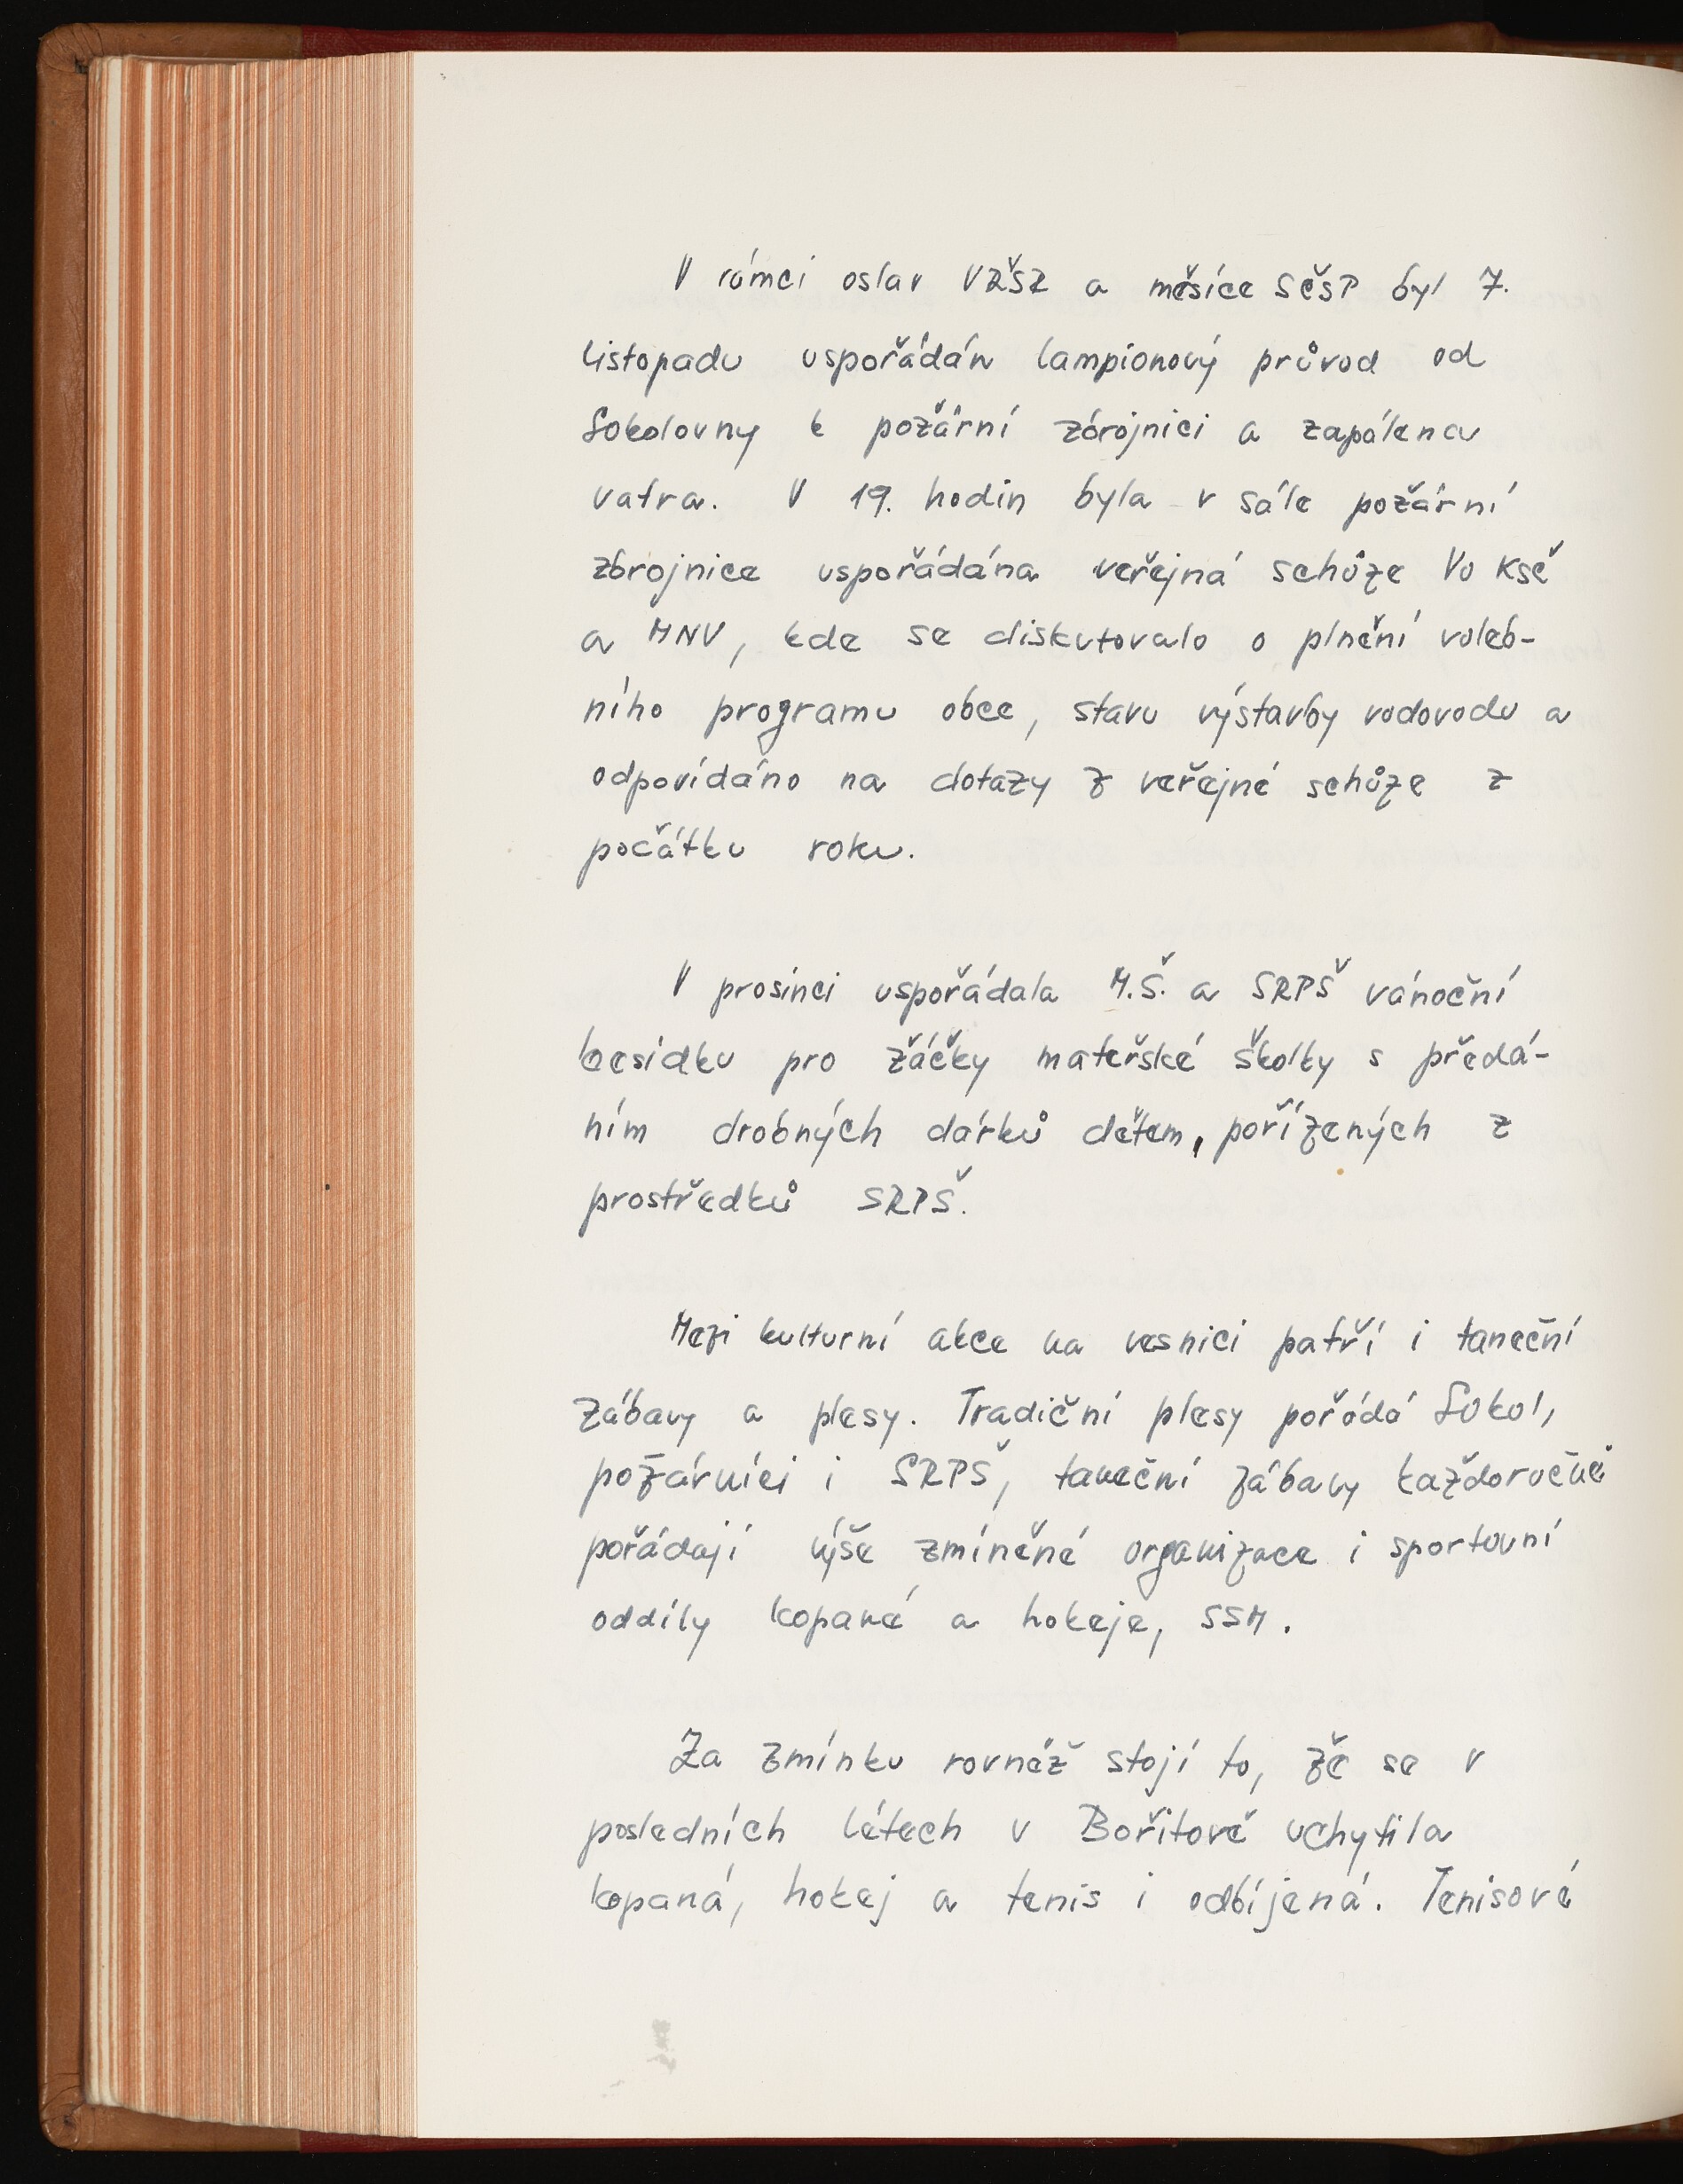 V rámci oslav VŘSR a měsíce SČSP byl 7.
listopadu uspořádán lampionový průvod od
Sokolovny k požární zbrojnici a zapálena
vatra. V 19. hodin byla v sále požární
zbrojnice uspořádána veřejná schůze Vo KSČ
a MNV, kde se diskutovalo o plnění voleb-
ního programu obce, stavu výstavby vodovodu a
odpovídáno na dotazy z veřejné schůze z
počátku roku.
V prosinci uspořádala M.Š. a SRPŠ vánoční
besídku pro žáčky mateřské školky s předá-
ním drobných dárků dětem, pořízených z
prostředků SRPŠ.
Mezi kulturní akce na vesnici patří i taneční
zábavy a plesy. Tradiční plesy pořádá Sokol,
požárníci i SRPŠ, taneční zábavy každoročně
pořádají výše zmíněné organizace i sportovní
oddíly kopané a hokeje, SSM.
Za zmínku rovněž stojí to, že se v
posledních létech v Bořitově uchytila
kopaná, hokej a tenis i odbíjená. Tenisové